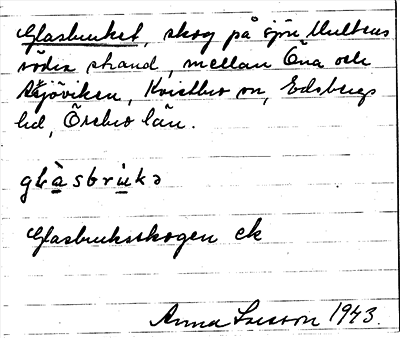 Glasbruket, skog på sjön Multens
södra strand, mellan Öna och
sjöviken, Kvistbro sn, Edsbergs
hd, Örebro län.
glàsbrùkə
Glasbruksskogen ek
Anna Larsson 1943.